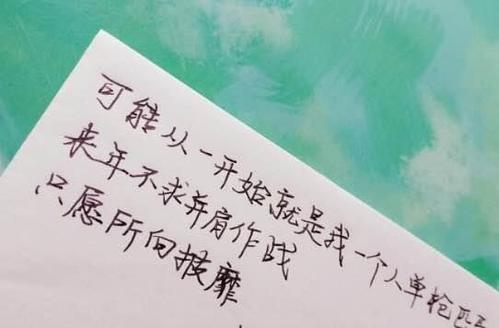 可能从一开始就是我一个人单枪匹
来年不求并肩作战
只愿所向披靡